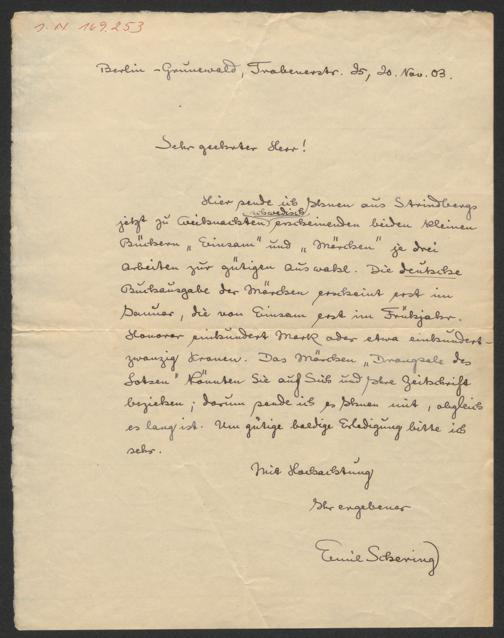 J. N. 169.253
Berlin-Grunewald, Trabenerstr. 25, 20. Nov. 03.
Sehr geehrter Herr!
Hier sende ich Ihnen aus Strindbergs
schwedisch
jetzt zu Weihnachten erscheinenden beiden kleinen
Büchern „Einsam“ und „Märchen“ je drei
Arbeiten zur gütigen Auswahl. Die deutsche
Buchausgabe der Märchen erscheint erst im
Januar, die von Einsam erst im Frühjahr.
Honorar einhundert Mark oder etwa einhundert-
zwanzig Kronen. Das Märchen „Drangsale des
Lotsen“ könnten Sie auf Sich und Ihre Zeitschrift
beziehen; darum sende ich es Ihnen mit, obgleich
es lang ist. Um gütige baldige Erledigung bitte ich
sehr.
Mit Hochachtung
Ihr ergebener
Emil Schering